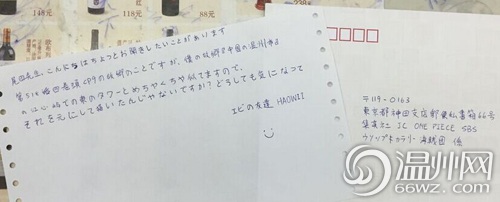 118元
148元
118元
88元
238元
尾田先生、こんにちは ちょっとお聞きしたいことがあります
第516話目表紙CP9の故郷のことですが、僕の故郷中国の温州市
の中心地での東のタワーとめちゃくちゃ似てますので、
それを元にして描いたんじゃないですか？どうしても気になって
エビの友達 HAOWZI
〒119-0163
東京都神田支店郵便私書箱66号
集英社 JC ONE PIECE SBS
ウソップギャラリー海賊団 係
温州网
66WZ.com